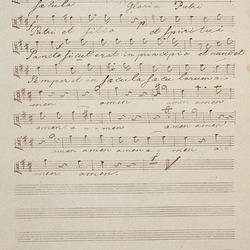 saecula Gloria Patri
Patri et filio et Spiritui
Sancto sicut erat in principio et nunc et
semper et in saecula saeculorum a
men amen amen
amen a men a
men amen amen a men a
men amen.